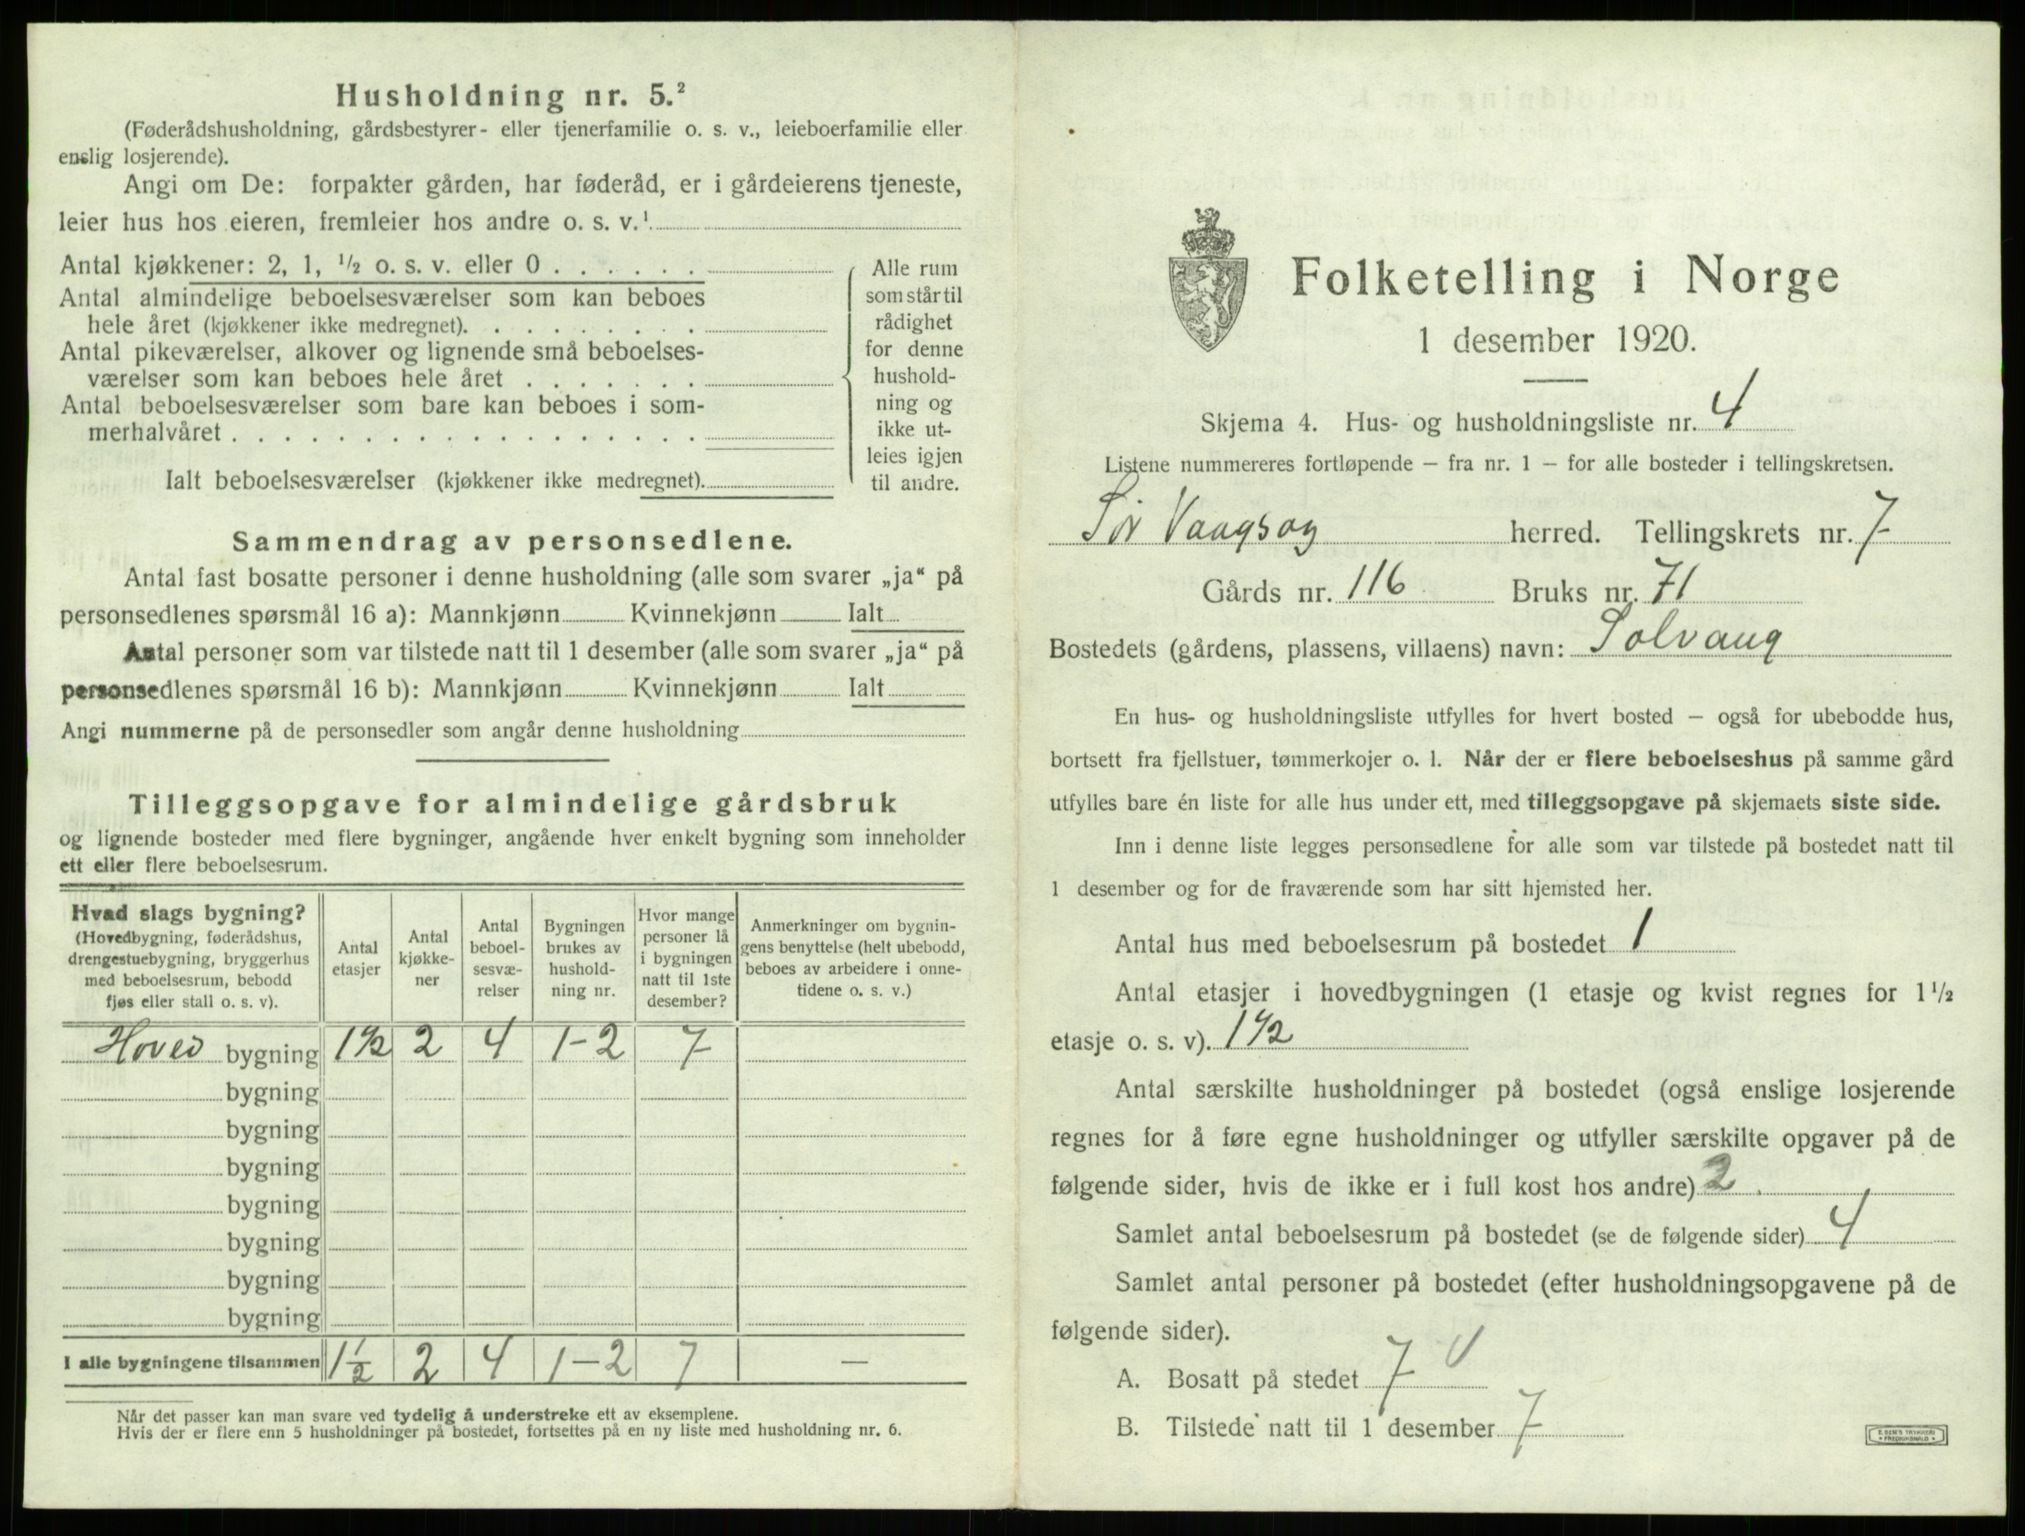 Husholdning nr. 5.²
(Føderådshusholdning, gårdsbestyrer- eller tjenerfamilie o. s. v., leieboerfamilie eller
enslig losjerende).
Angi om De: forpakter gården, har føderåd, er i gårdeierens tjeneste,
leier hus hos eieren, fremleier hos andre o. s. v.¹
Antal kjøkkener: 2, 1, ½ o. s. v. eller 0 . . . . . .
Antal almindelige beboelsesværelser som kan beboes
hele året (kjøkkener ikke medregnet). . . . . . . . .
Antal pikeværelser, alkover og lignende små beboelses-
værelser som kan beboes hele året . . . . . . .
Antal beboelsesværelser som bare kan beboes i som-
merhalvåret . . . . . . . . . . . . . . . . . .
Ialt beboelsesværelser (kjøkkener ikke medregnet).
Alle rum
som står til
rådighet
for denne
hushold-
ning og
ikke ut-
leies igjen
til andre.
Sammendrag av personsedlene.
Antal fast bosatte personer i denne husholdning (alle som svarer „ja“ på
personsedlenes spørsmål 16 a): Mannkjønn Kvinnekjønn Ialt
Antal personer som var tilstede natt til 1 desember (alle som svarer „ja“ på
personsedlenes spørsmål 16 b): Mannkjønn Kvinnekjønn Ialt
Angi nummerne på de personsedler som angår denne husholdning
Tilleggsopgave for almindelige gårdsbruk
og lignende bosteder med flere bygninger, angående hver enkelt bygning som inneholder
ett eller flere beboelsesrum.
Hvad slags bygning?
(Hovedbygning, føderådshus,
drengestuebygning, bryggerhus
med beboelsesrum, bebodd
fjøs eller stall o. s. v).
Antal
etasjer
Antal
kjøkke-
ner
Antal
beboel-
sesvæ-
relser
Bygningen
brukes av
hushold-
ning nr.
Hvor mange
personer lå
i bygningen
natt til 1ste
desember?
Anmerkninger om bygnin-
gens benyttelse (helt ubebodd,
beboes av arbeidere i onne-
tidene o. s. v.)
Hoved bygning 1½ 2 4 1-2 7
bygning
bygning
bygning
bygning
bygning
bygning
bygning
I alle bygningene tilsammen 1½ 2 4 1-2 7 —
Når det passer kan man svare ved tydelig å understreke ett av eksemplene.
Hvis der er flere enn 5 husholdninger på bostedet, fortsettes på en ny liste med husholdning nr. 6.
Folketelling i Norge
1 desember 1920.
Skjema 4. Hus- og husholdningsliste nr. 4
Listene nummereres fortløpende – fra nr. 1 – for alle bosteder i tellingskretsen.
Sør Vaagsøy herred. Tellingskrets nr. 7
Gårds nr. 116 Bruks nr. 71
Bostedets (gårdens, plassens, villaens) navn: Solvang
En hus- og husholdningsliste utfylles for hvert bosted – også for ubebodde hus,
bortsett fra fjellstuer, tømmerkojer o. l. Når der er flere beboelseshus på samme gård
utfylles bare én liste for alle hus under ett, med tilleggsopgave på skjemaets siste side.
Inn i denne liste legges personsedlene for alle som var tilstede på bostedet natt til
1 desember og for de fraværende som har sitt hjemsted her.
Antal hus med beboelsesrum på bostedet 1
Antal etasjer i hovedbygningen (1 etasje og kvist regnes for 1½
etasje o. s. v). 1½
Antal særskilte husholdninger på bostedet (også enslige losjerende
regnes for å føre egne husholdninger og utfyller særskilte opgaver på de
følgende sider, hvis de ikke er i full kost hos andre) 2
Samlet antal beboelsesrum på bostedet (se de følgende sider) 4
Samlet antal personer på bostedet (efter husholdningsopgavene på de
følgende sider).
A. Bosatt på stedet 7
B. Tilstede natt til 1 desember 7